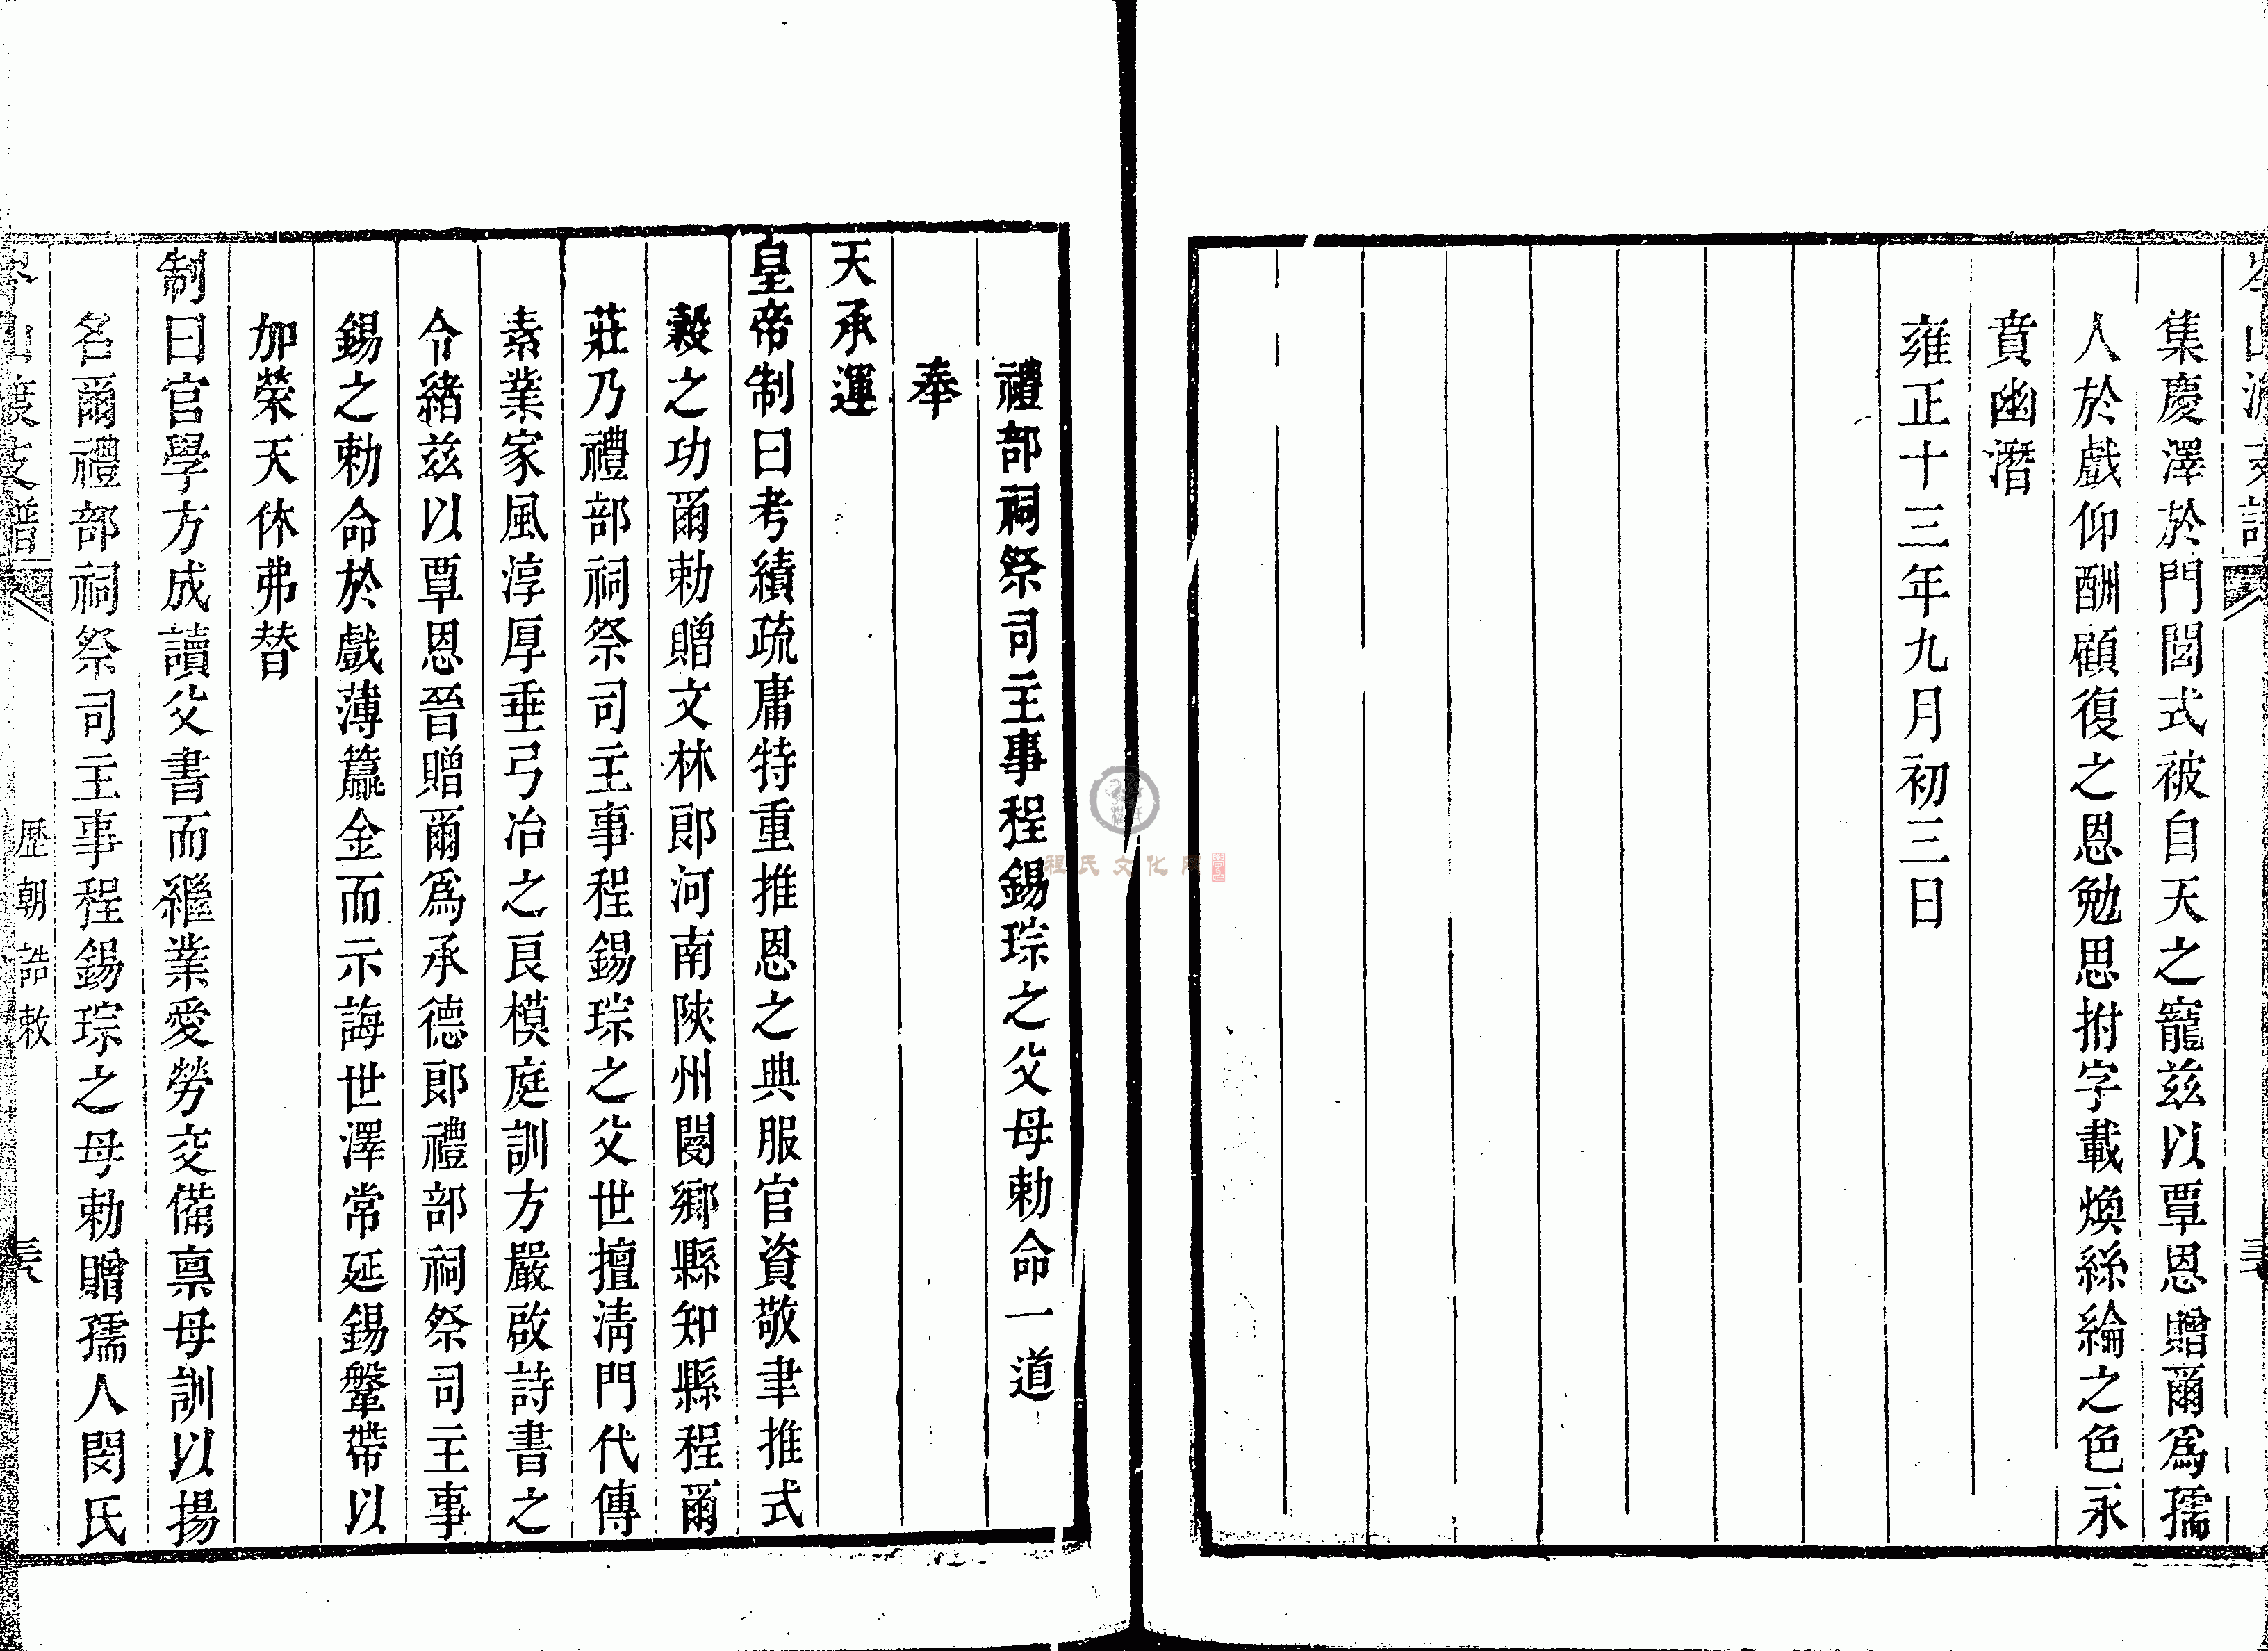 集慶澤於門閭式被自天之寵兹以覃恩贈爾爲孺
人於戲仰酬顧復之恩勉思拊字載煥絲綸之色永
賁幽潛
雍正十三年九月初三日
禮部祠祭司主事程錫琮之父母勅命一道
奉
天承運
皇帝制曰考績疏庸特重推恩之典服官資敬聿推式
穀之功爾勅贈文林郎河南陝州閿鄉縣知縣程爾
莊乃禮部祠祭司主事程錫琮之父世擅淸門代傳
素業家風淳厚垂弓冶之良模庭訓方嚴啟詩書之
令緒兹以覃恩晉贈爾爲承德郎禮部祠祭司主事
錫之勅命於戲薄籯金而示誨世澤常延錫鞶帶以
加榮天休弗替
制曰官學方成讀父書而繼業愛勞交備禀母訓以揚
名爾禮部祠祭司主事程錫琮之母勅贈孺人閔氏
山渡支譜
歷朝誥敕
程氏文化网